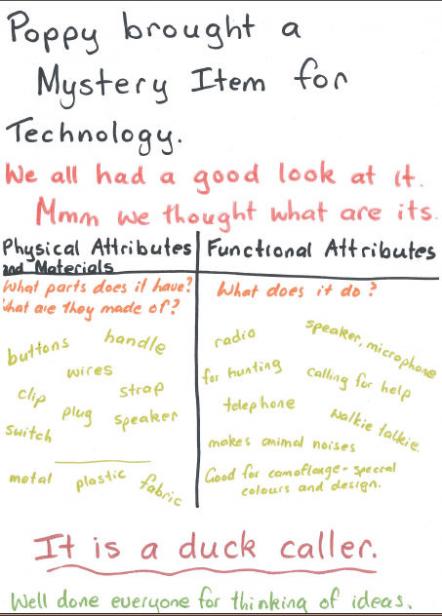 Poppy brought a
Mystery Item for
Technology.
We all had a good look at it.
Mmm we thought what are its.
Physical Attributes
and Materials
What parts does it have?
What are they made of?
buttons handle
wires
clip strap
plug speaker
switch
metal plastic fabric
Functional Attributes
What does it do?
radio speaker, microphone
for hunting calling for help
telephone walkie talkie
makes animal noises
Good for camoflange - special
colours and design.
It is a duck caller.
Well done everyone for thinking of ideas.